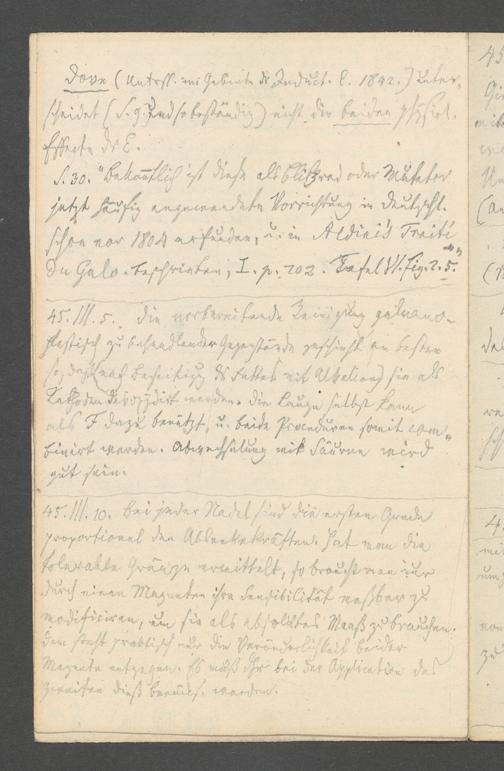 Dove (Unters. im Gebiete der Induct. E. 1842.) unter-
scheidet (S. 9. und so beständig) nicht die beiden physiol.
Effecte der E.
S. 30. "Bekanntlich ist diese als Blitzrad oder Mutator
jetzt häufig angewendete Vorrichtung in Deutschl.
schon vor 1804 erfunden, u. in Aldini's Traité
du Galv. beschrieben, I. p. 202. Tafel VI. fig. 2. 5."
45. III. 5. Die vorbereitende Reinigung galvano-
plastisch zu behandelnder Gegenstände geschieht am besten
so, daß (nach Beseitigung des Fettes mit Alkalien) sie als
Kathoden deoxydirt werden. Die Lauge selbst kann
als F dazu benützt, u. beide Proceduren somit com-
binirt werden. Abwechselung mit Säuren wird
gut sein.
45. III. 10. Bei jeder Nadel sind die ersten Grade
proportional den Ablenkekräften. Hat man die
tolerable Gränze ermittelt, so braucht man nur
durch einen Magneten ihre Sensibilität meßbar zu
modificiren, um sie als absolutes Maaß zu brauchen.
Dem steht praktisch nur die Veränderlichkeit beider
Magnete entgegen. Es muß Ihr bei der Application des
zweiten dieß werden.